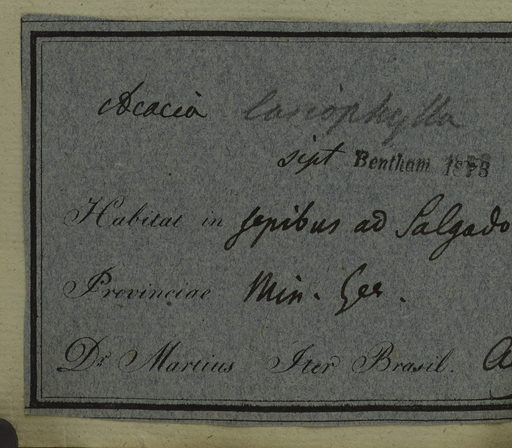 Acacia lasiophylla
sipt Bentham
Habitat in sepibus ad Salgado
Provinciae Min. Ger.
Dr Martius Iter Brasil.